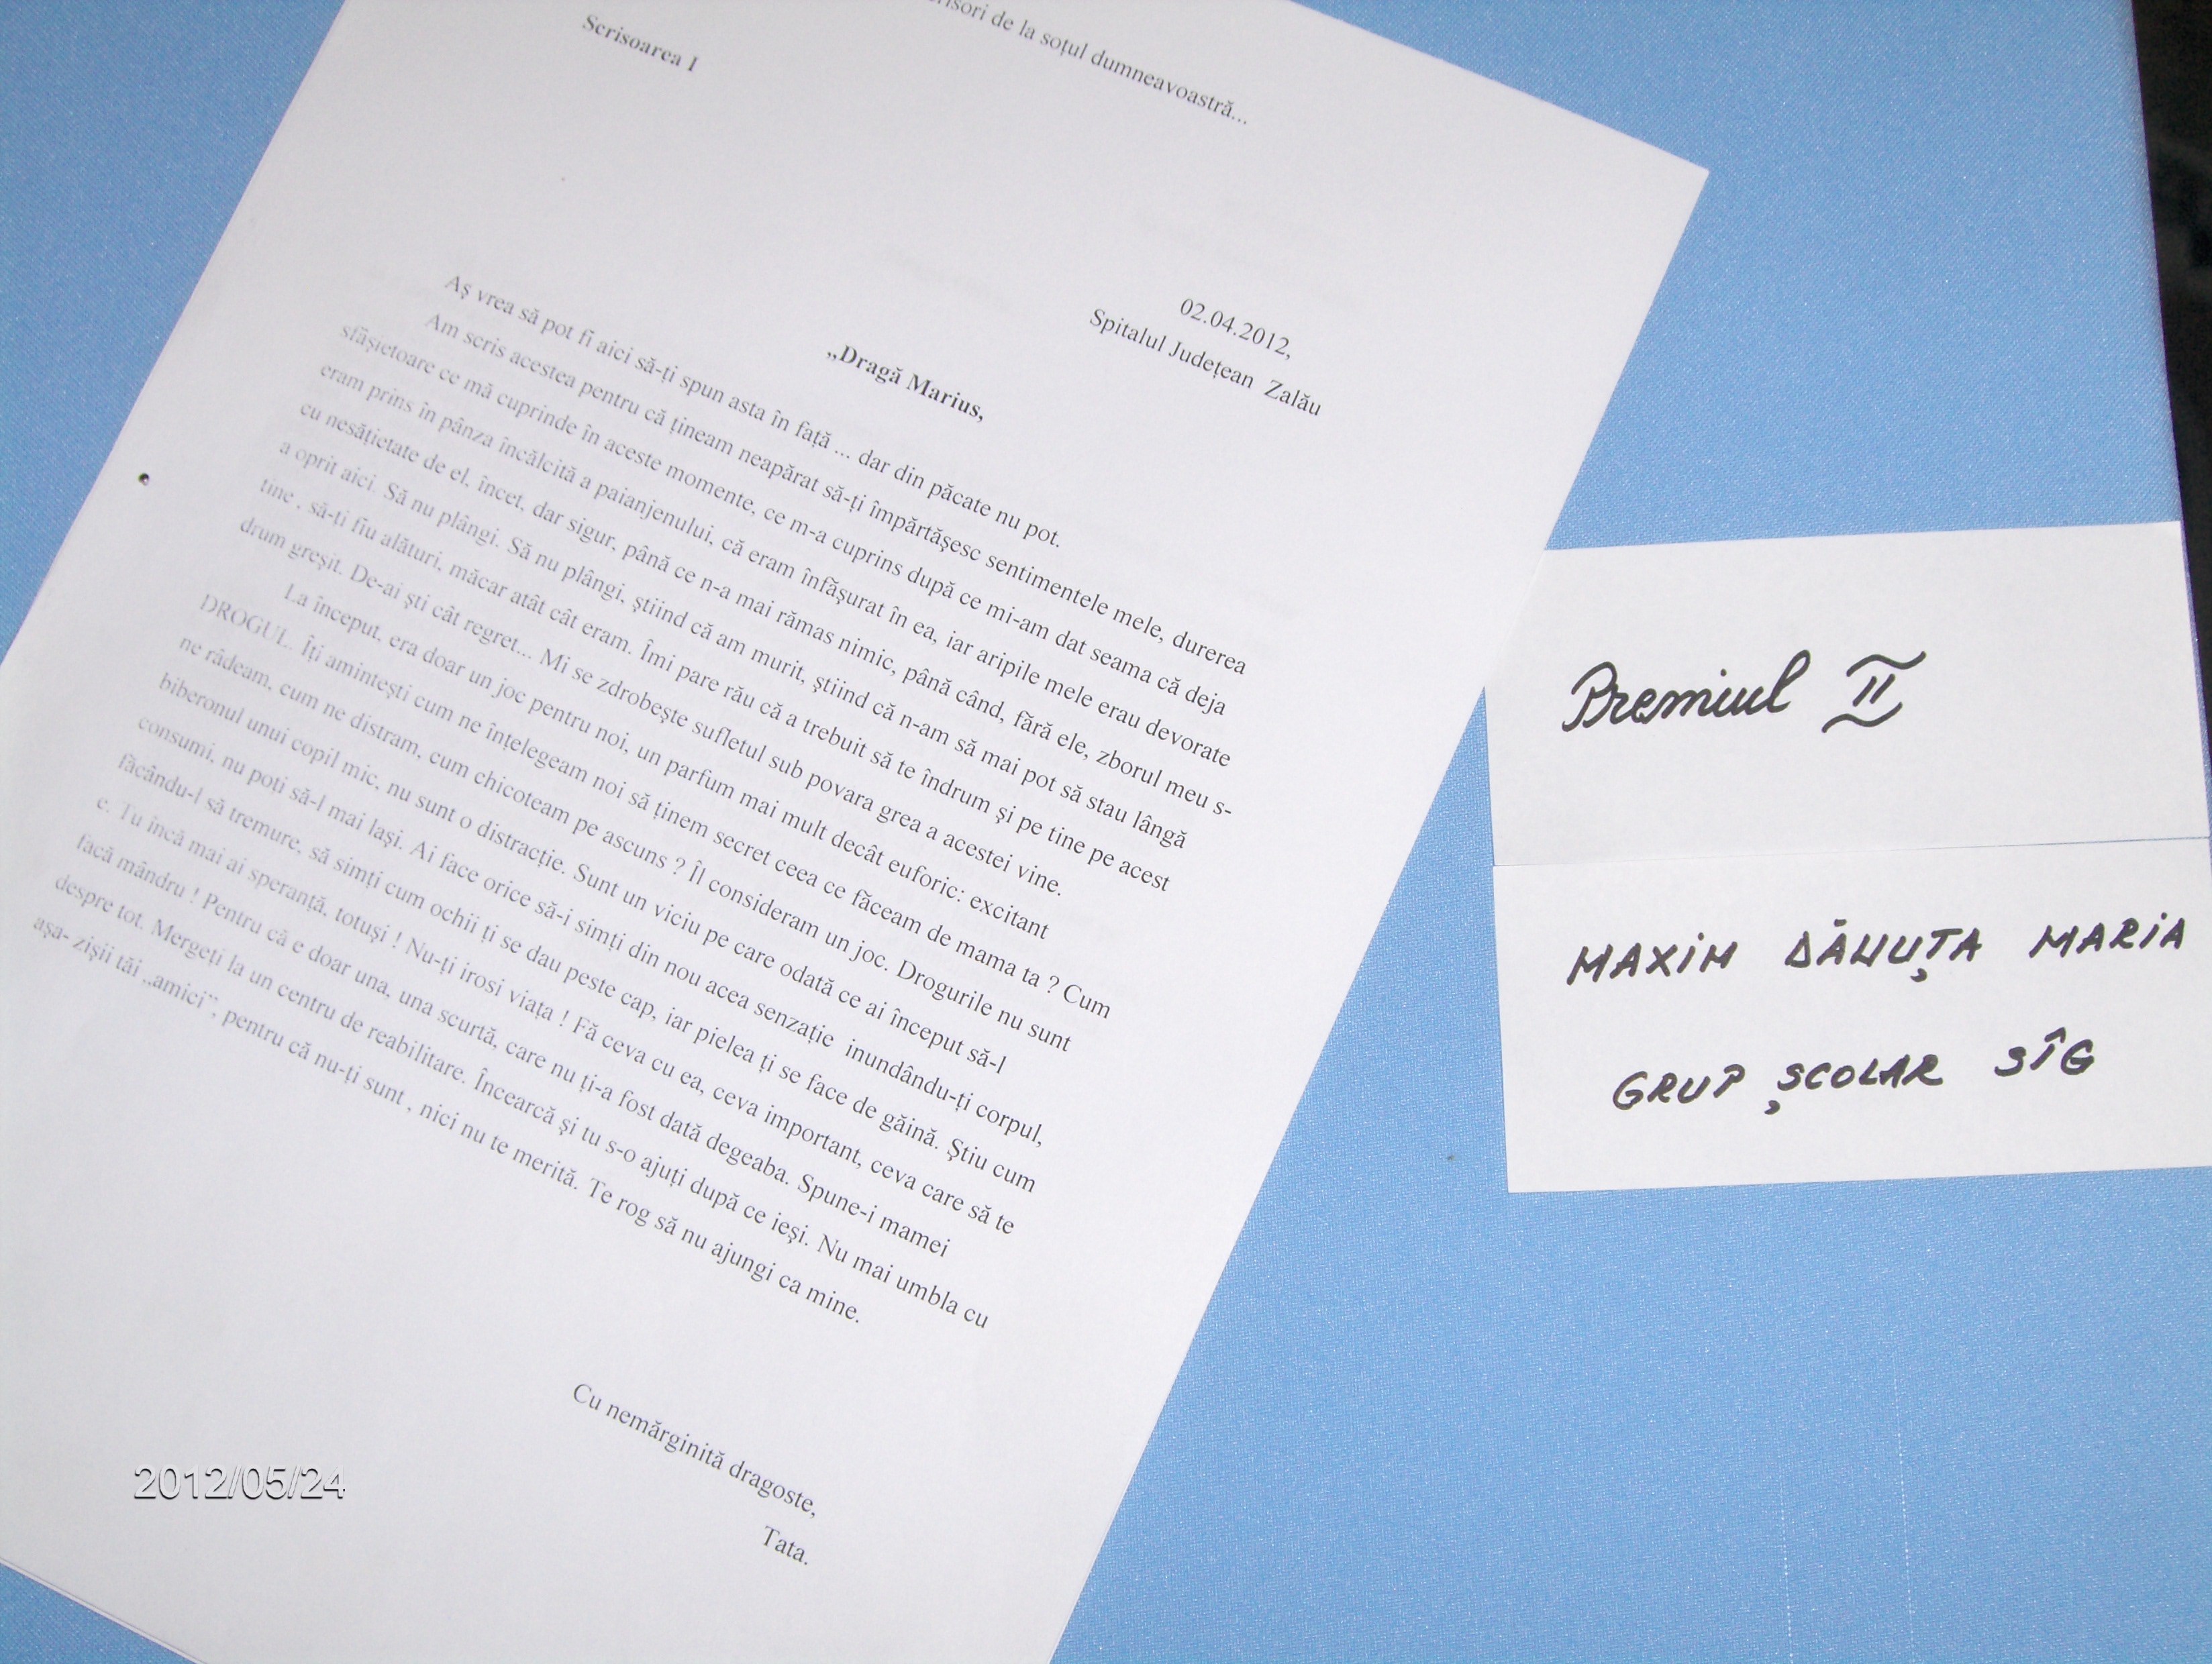 de la soțul dumneavoastră...
Scrisoarea I
02.04.2012,
Spitalul Județean Zalău
„Dragă Marius,
Aş vrea să pot fi aici să-ți spun asta în față ... dar din păcate nu pot.
Am scris acestea pentru că țineam neapărat să-ți împărtăşesc sentimentele mele, durerea
sfâşietoare ce mă cuprinde în aceste momente, ce m-a cuprins după ce mi-am dat seama că deja
eram prins în pânza încâlcită a paianjenului, că eram înfăşurat în ea, iar aripile mele erau devorate
cu nesățietate de el, încet, dar sigur, până ce n-a mai rămas nimic, până când, fără ele, zborul meu s-
a oprit aici. Să nu plângi. Să nu plângi, ştiind că am murit, ştiind că n-am să mai pot să stau lângă
tine , să-ti fiu alături, măcar atât cât eram. Îmi pare rău că a trebuit să te îndrum şi pe tine pe acest
drum greşit. De-ai şti cât regret... Mi se zdrobeşte sufletul sub povara grea a acestei vine.
La început, era doar un joc pentru noi, un parfum mai mult decât euforic: excitant
DROGUL. Îți aminteşti cum ne înțelegeam noi să ținem secret ceea ce făceam de mama ta ? Cum
ne râdeam, cum ne distram, cum chicoteam pe ascuns ? Îl consideram un joc. Drogurile nu sunt
biberonul unui copil mic, nu sunt o distracție. Sunt un viciu pe care odată ce ai început să-l
consumi, nu poți să-l mai laşi. Ai face orice să-i simți din nou acea senzație inundându-ți corpul,
făcându-l să tremure, să simți cum ochii ți se dau peste cap, iar pielea ți se face de găină. Ştiu cum
e. Tu încă mai ai speranță, totuşi ! Nu-ți irosi viața ! Fă ceva cu ea, ceva important, ceva care să te
facă mândru ! Pentru că e doar una, una scurtă, care nu ți-a fost dată degeaba. Spune-i mamei
despre tot. Mergeți la un centru de reabilitare. Încearcă şi tu s-o ajuți după ce ieşi. Nu mai umbla cu
aşa- zişii tăi „amici”, pentru că nu-ți sunt , nici nu te merită. Te rog să nu ajungi ca mine.
Cu nemărginită dragoste,
Tata.
Premiul II
MAXIM DĂNUȚA MARIA
GRUP ŞCOLAR SÎG
2012/05/24